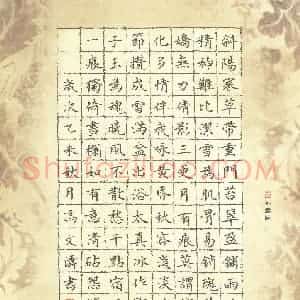 斜陽寒草帶重門苔翠盈鋪雨
精神難比潔雪為肌骨易銷魂
嬌無力倩影三更月有痕莫謂
化多情伴我詠黃昏秋容淺淡
節攢成雪滿盆出浴太真冰作
子玉為魂曉風不散愁千點宿
一痕獨倚畫欄如有意清砧怨
歲次乙未秋月高文濤書